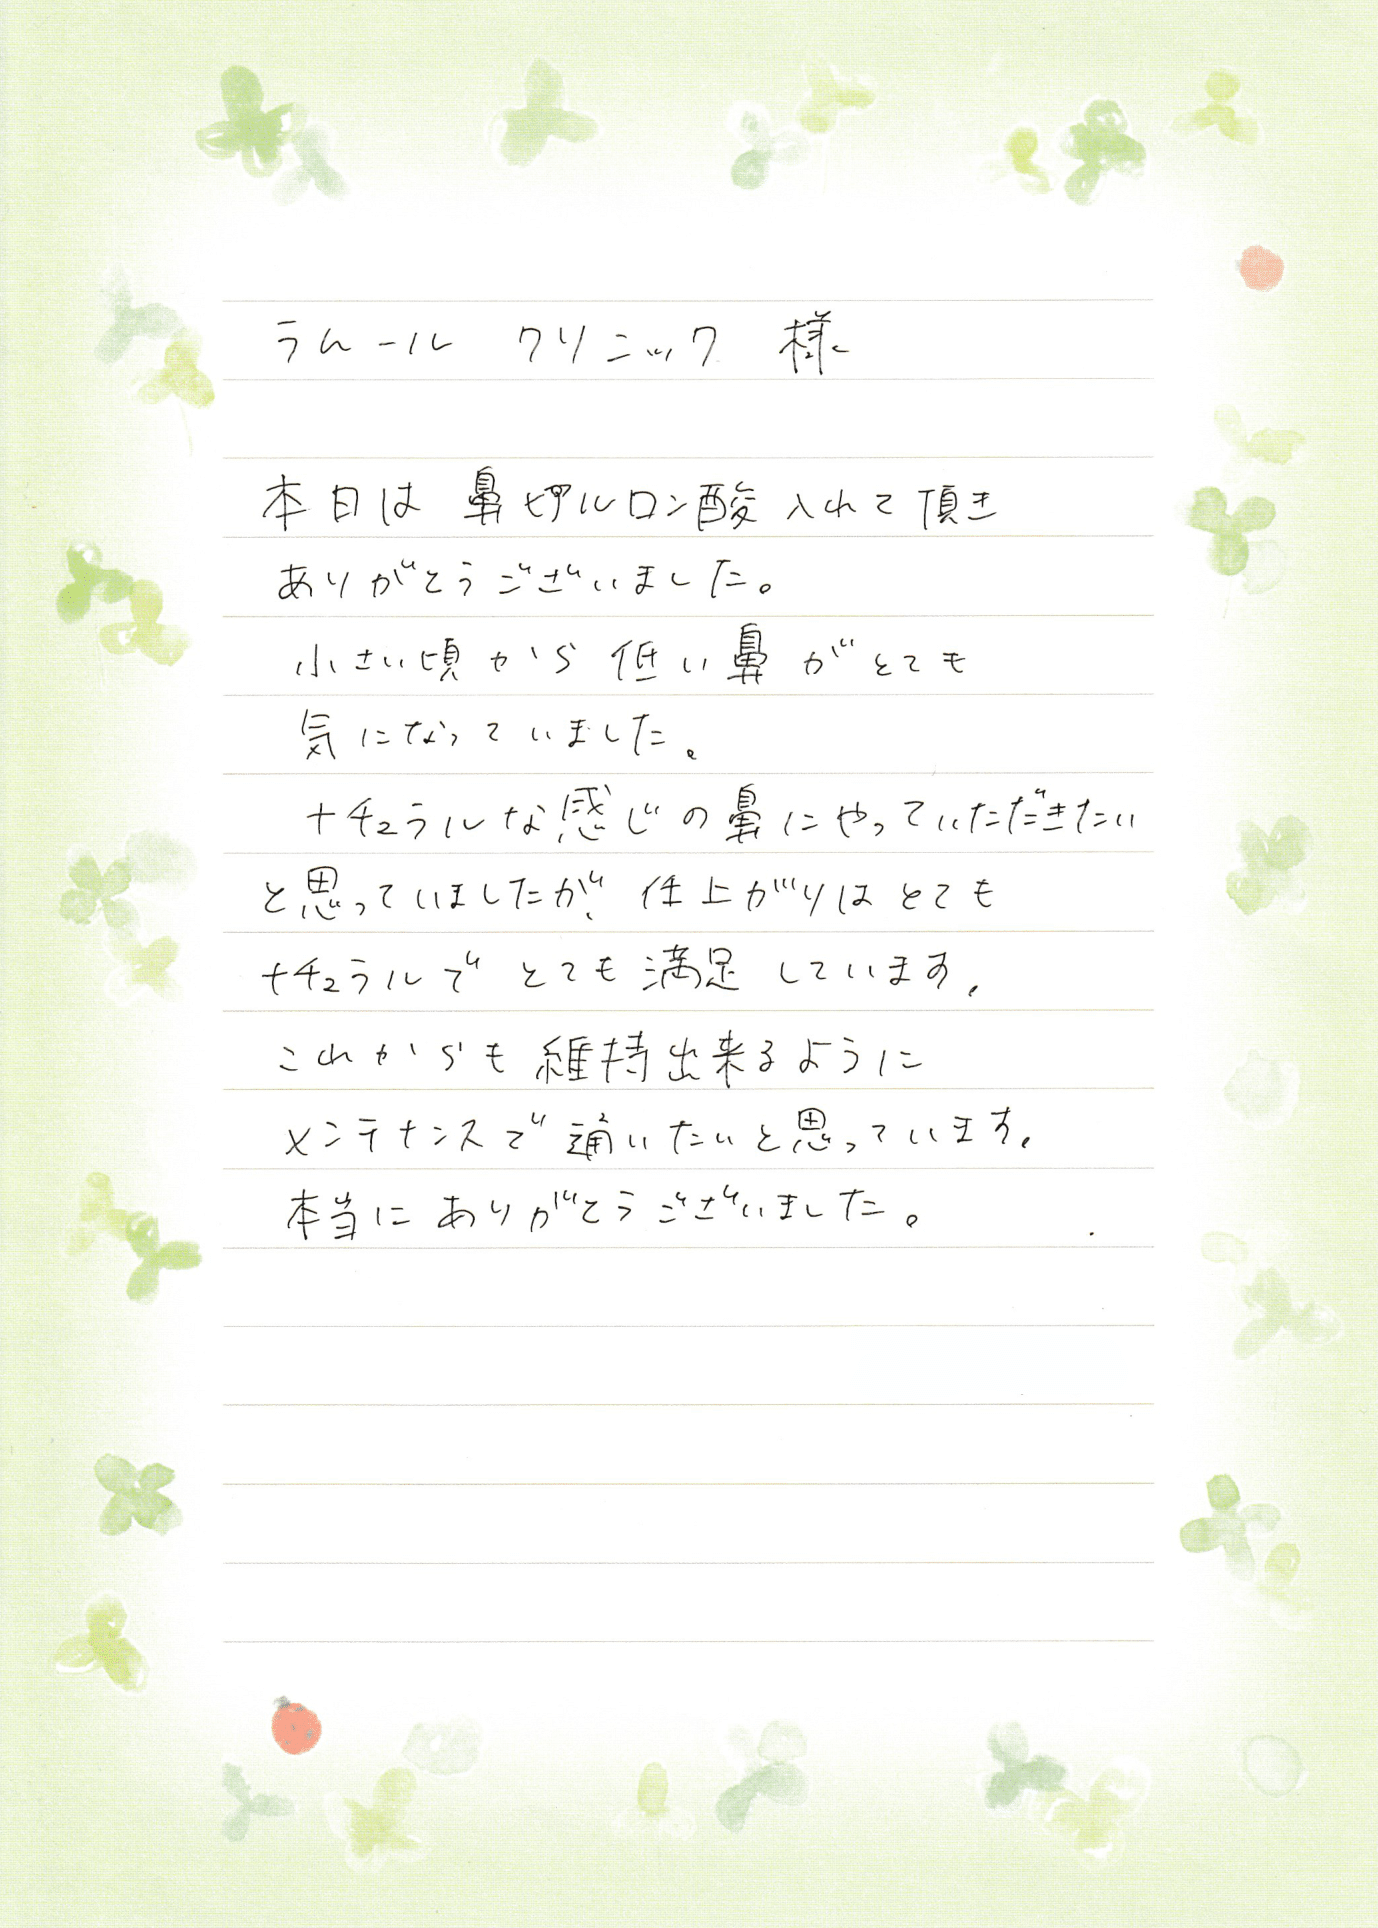 らムール クリニック 様
本日は 鼻ヒアルロン酸 入れて 頂き
ありがとうございました。
小さい頃から 低い鼻がとても
気になっていました。
ナチュラルな感じの鼻にやっていただきたい
と思っていましたが、仕上がりはとても
ナチュラルで とても満足しています。
これからも 維持出来るように
メンテナンスで通いたいと思っています。
本当に ありがとうございました。